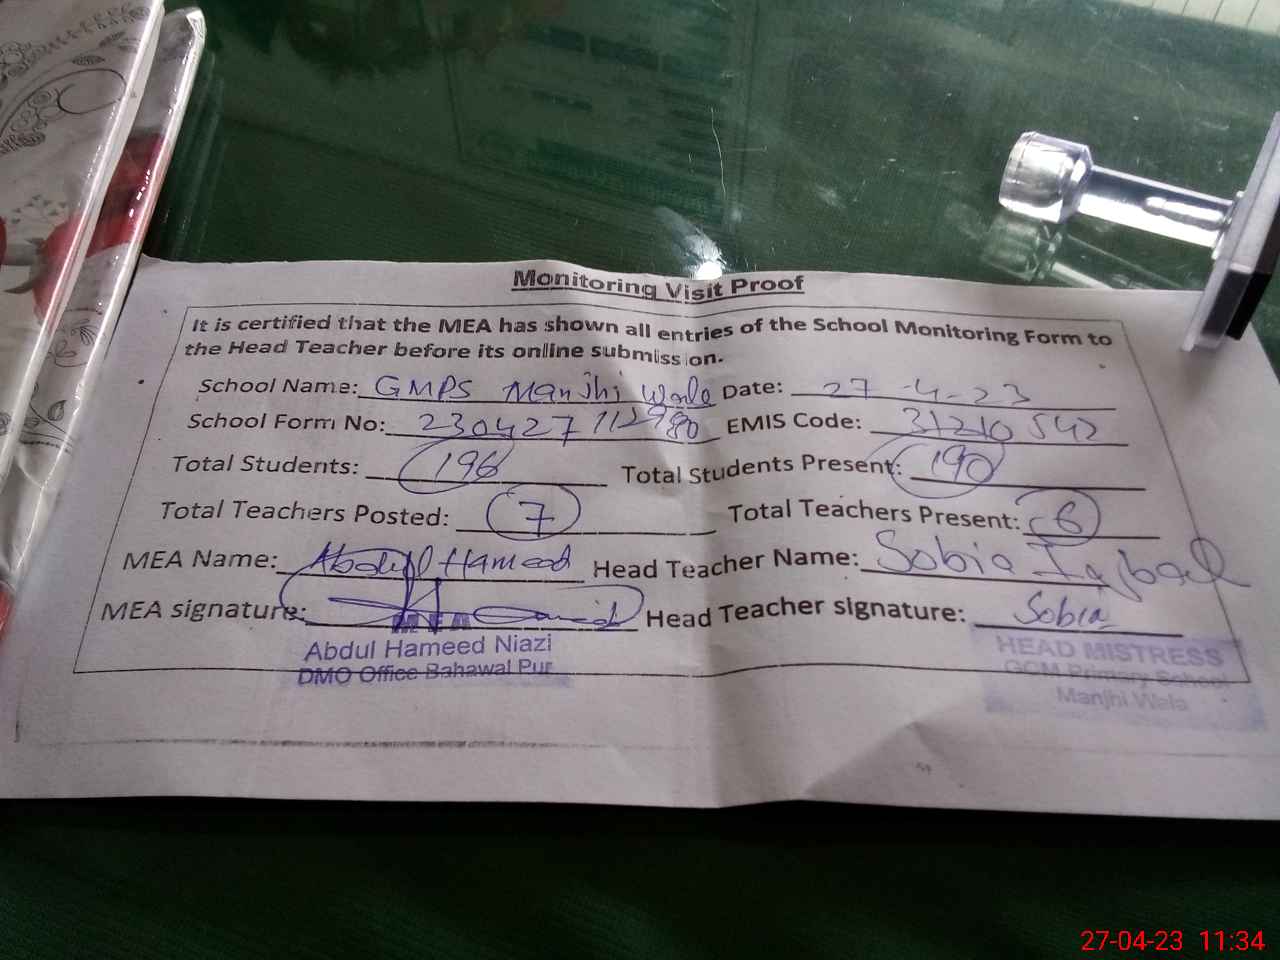 Monitoring Visit Proof
It is certified that the MEA has shown all entries of the School Monitoring Form to
the Head Teacher before its online submission.
School Name: GMPS Manjhi Wala Date: 27-4-23
School Form No: 230427112980 EMIS Code: 31210542
Total Students: 196 Total Students Present: 190
Total Teachers Posted: 7 Total Teachers Present: 6
MEA Name: Abdul Hameed Head Teacher Name: Sobia Iqbal
MEA signature: Head Teacher signature: Sobia
MEA
Abdul Hameed Niazi
DMO Office Bahawal Pur
HEAD MISTRESS
GCM Primary School
Manjhi Wala
27-04-23 11:34